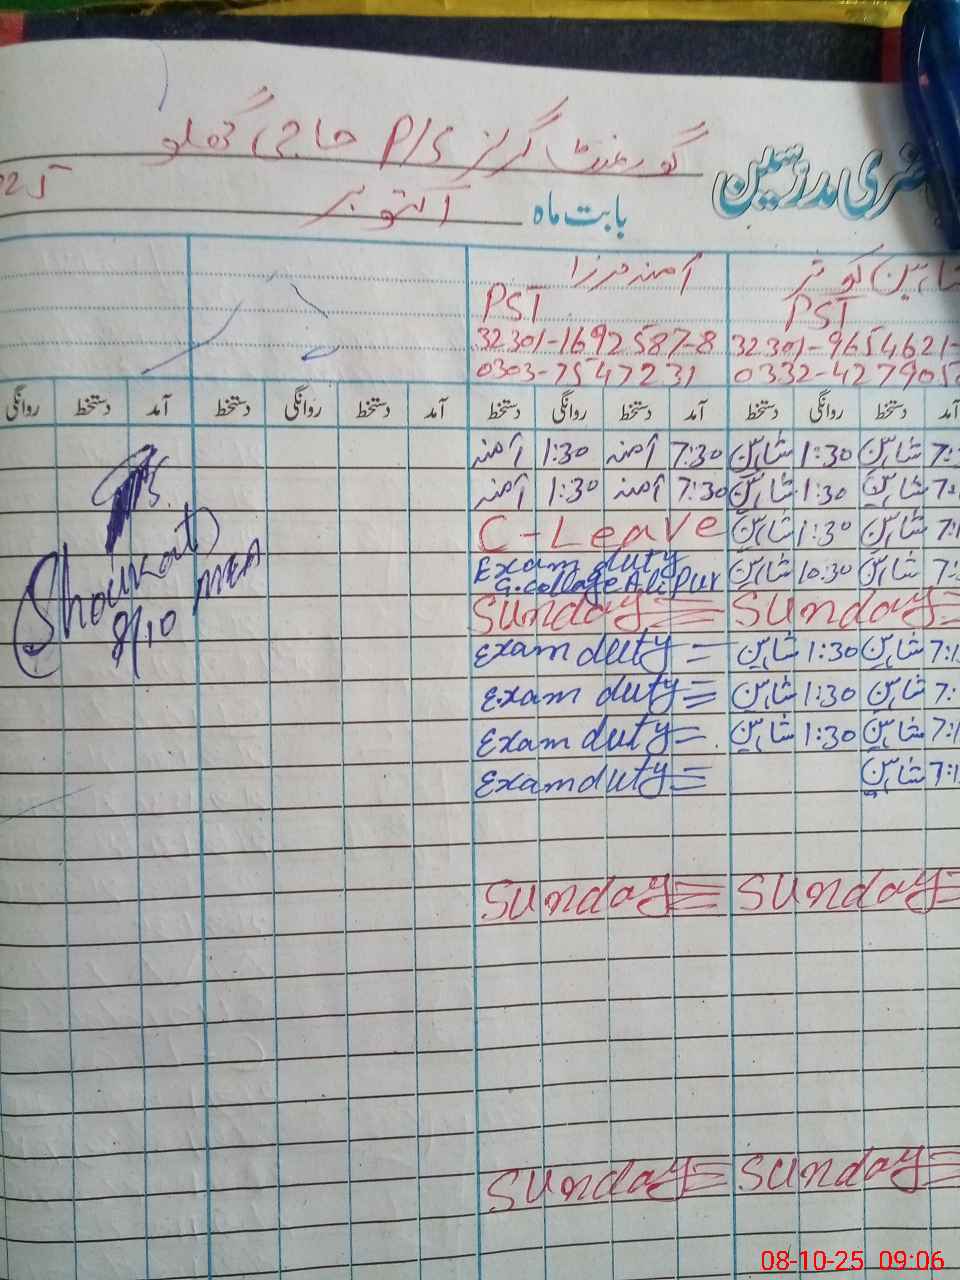 گورنمنٹ گرلز P/S حاجی گملو
ضری مدرسین
بابت ماہ اکتوبر 025
شاہین کوثر آمنہ مرزا
PST PST
32301-1692587-8 32301-9654621-
0303-7547231 0332-427905
آمد دستخط روانگی دستخط آمد دستخط روانگی دستخط آمد دستخط روانگی دستخط آمد دستخط روانگی
7: شاہین 1:30 شاہین 7:30 آمنہ 1:30 آمنہ
7: شاہین 1:30 شاہین 7:30 آمنہ 1:30 آمنہ
7:1 شاہین 1:30 شاہین C-Leave
7: شاہین 10:30 شاہین Exam duty
G.collage Ali Pur
Sunday = Sunday =
7:1 شاہین 1:30 شاہین Exam duty =
7: شاہین 1:30 شاہین Exam duty =
7:1 شاہین 1:30 شاہین Exam duty =
7:1 شاہین Exam duty =
Shoukat
MEA
8/10
Sunday = Sunday =
Sunday = Sunday =
08-10-25 09:06